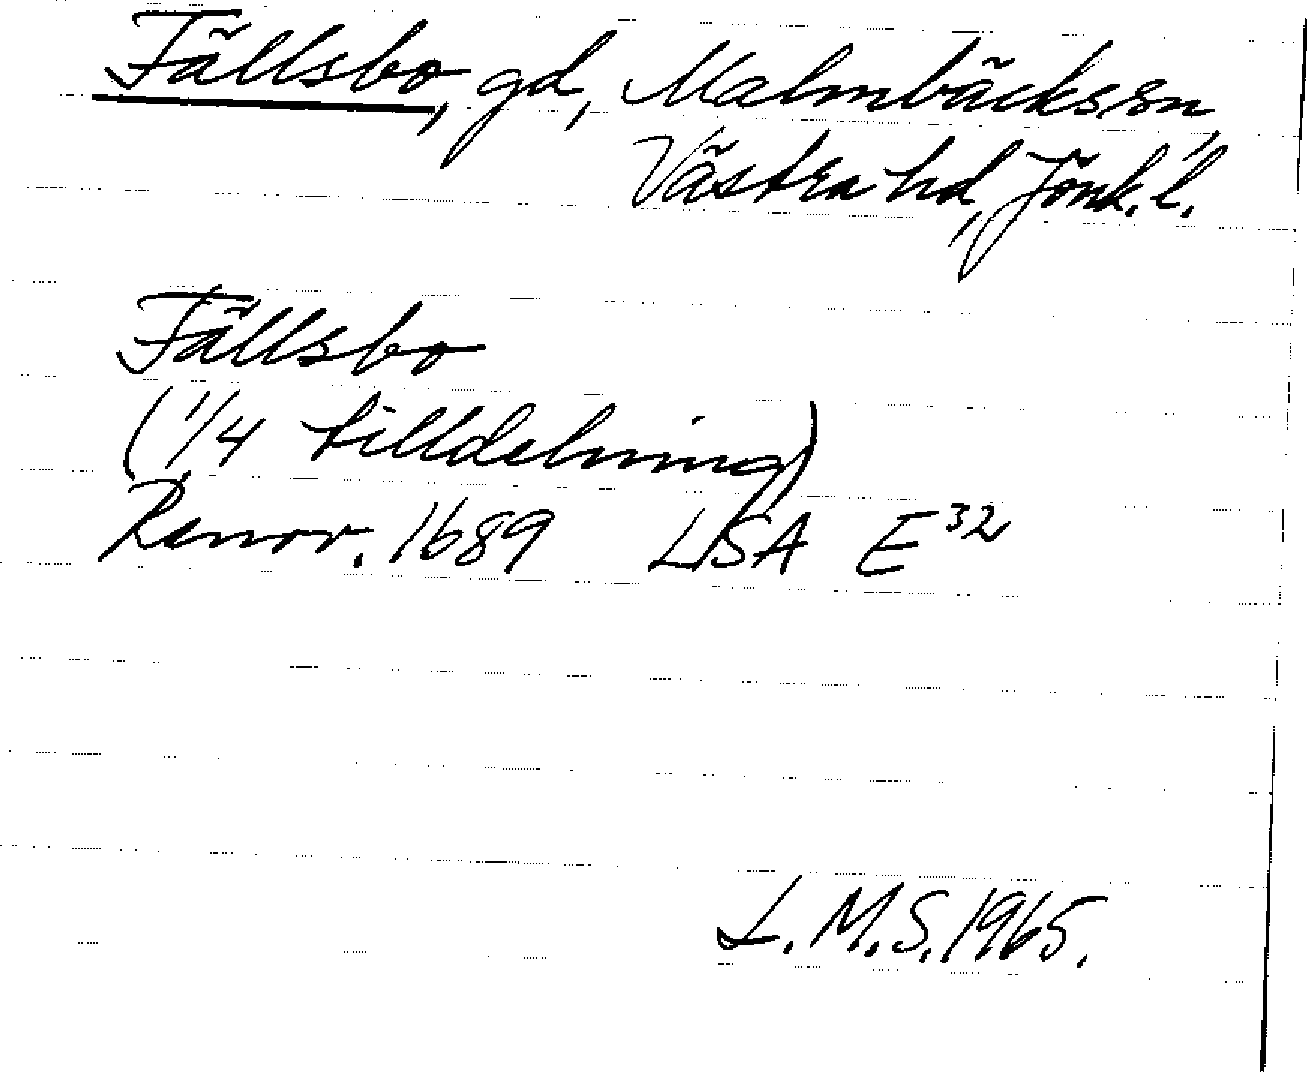 Fällsbo, gd, Malmbäcks sn,
Västra hd, Jönk. l.
Fällsbo
(1/4 tilldelning)
Renov. 1689 LSA E32
L. M. S. 1965.